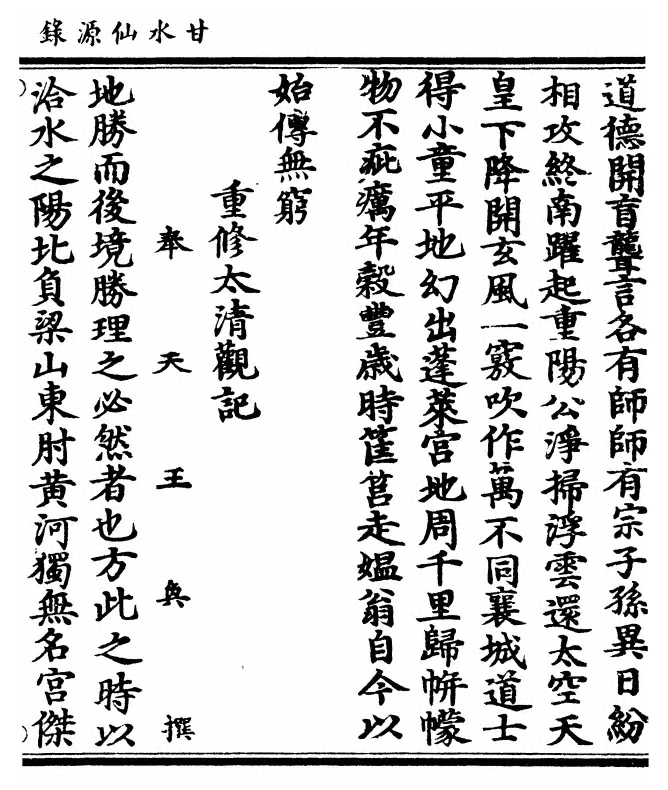 甘水仙源錄
道德開盲聾言各有師師有宗子孫異日紛
相攻終南躍起重陽公淨掃浮雲還太空天
皇下降開玄風一竅吹作萬不同襄城道士
得小童平地幻出蓬萊宮地周千里歸帡幪
物不疵癘年穀豐歲時筐筥走媼翁自今以
始傳無窮
重修太清觀記
奉天王奐撰
地勝而後境勝理之必然者也方此之時以
洽水之陽北負梁山東肘黃河獨無名宮傑